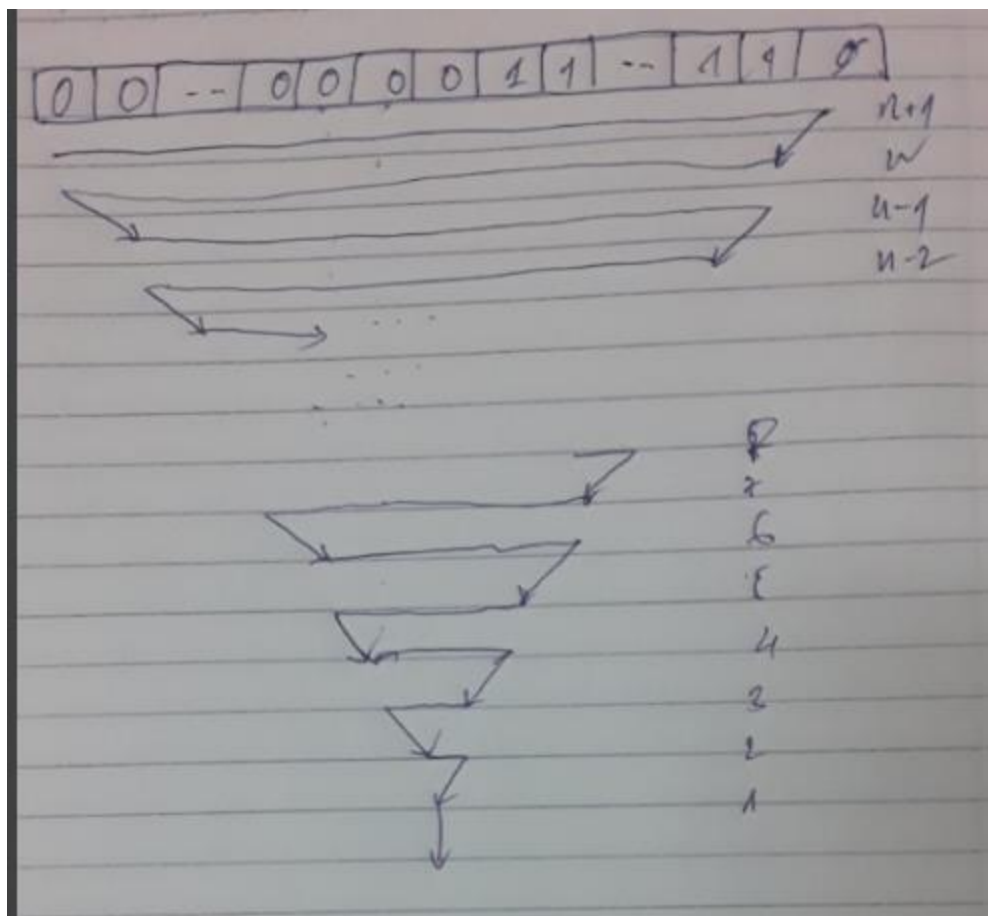 0 0 -- 0 0 0 0 1 1 -- 1 1 ∅
n+1
n
n-1
n-2
...
...
...
8
7
6
5
4
3
2
1